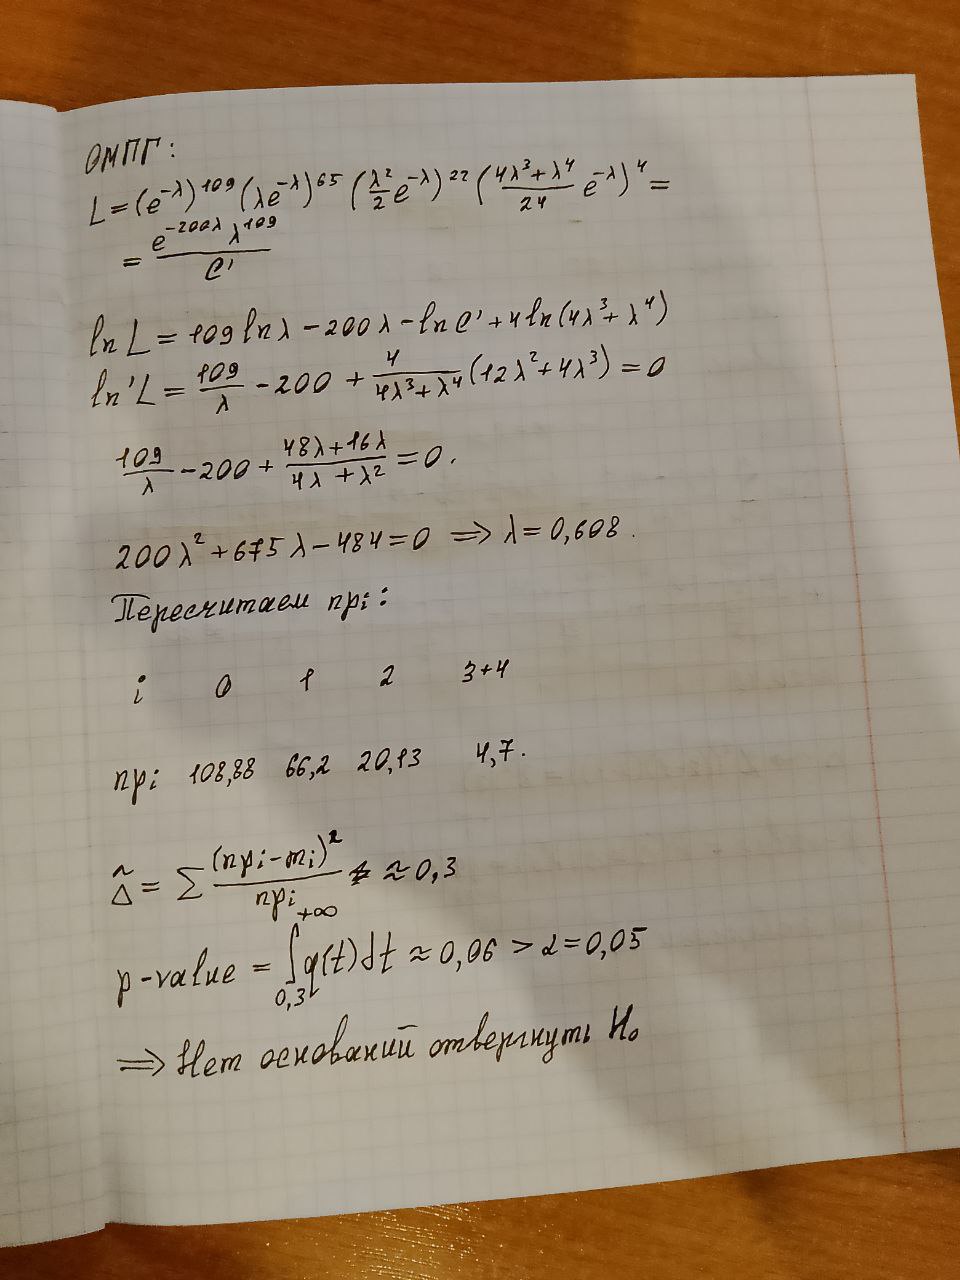 ОМПГ:
L = (e^{-λ})^{109} (λe^{-λ})^{65} (λ²/2 e^{-λ})^{22} ((4λ³+λ⁴)/24 e^{-λ})^4 =
= e^{-200λ} λ^{109} / C'
ln L = 109 ln λ - 200 λ - ln C' + 4 ln(4λ³+λ⁴)
ln' L = 109/λ - 200 + 4/(4λ³+λ⁴) (12λ²+4λ³) = 0
109/λ - 200 + (48λ+16λ)/(4λ+λ²) = 0.
200λ² + 675λ - 484 = 0 ⟹ λ = 0,608.
Пересчитаем npᵢ:
i 0 1 2 3+4
npᵢ 108,88 66,2 20,13 4,7.
Δ̃ = Σ (npᵢ-mᵢ)²/npᵢ ≈ 0,3
p-value = ∫_{0,3}^{+∞} q(t)dt ≈ 0,06 > α = 0,05
⟹ Нет оснований отвергнуть H₀